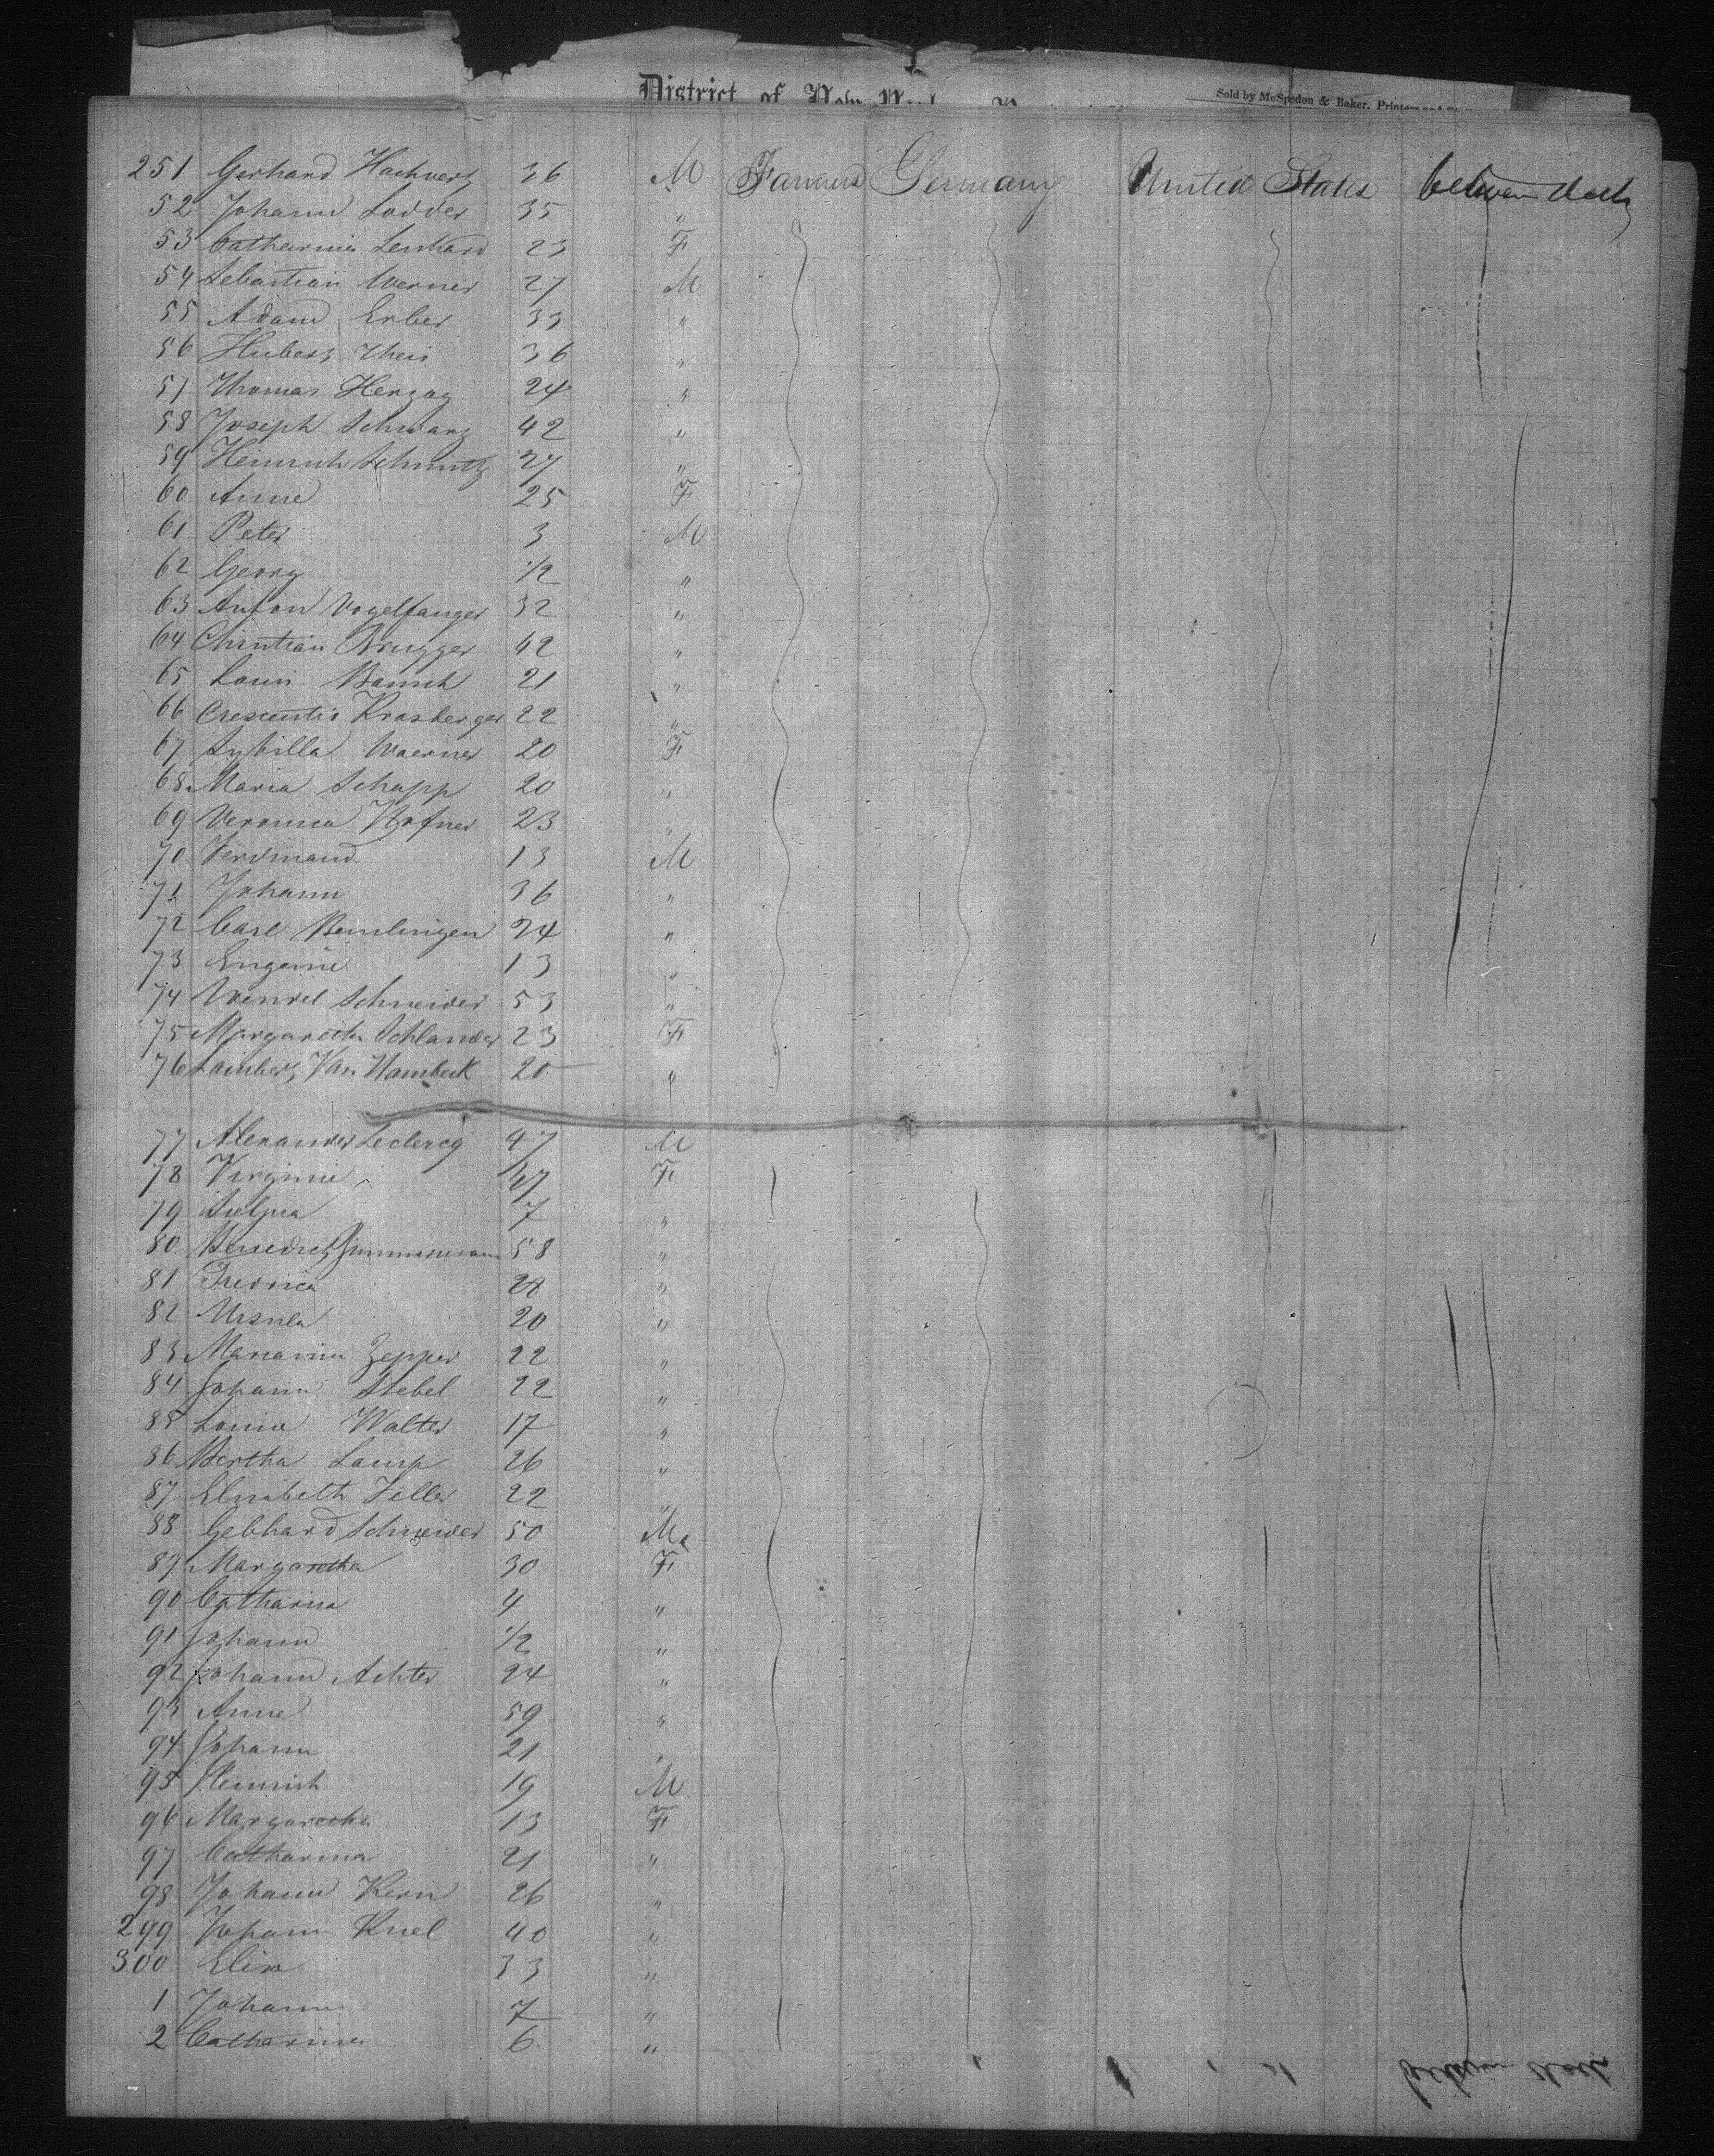 District of New York
Sold by McSpedon & Baker, Printers and
251 Gerhard 36 M Farmers Germany United States between decks
52 Johann Lodder 35 "
53 Catharina Lenhard 23 F
54 Sebastian Werner 27 M
55 Adam Erber 33 "
56 Hubert Theis 36 "
57 Thomas Herzog 24 "
58 Joseph Schwarz 42 "
59 Heinrich Schmitz 27 "
60 Anne 25 F
61 Peter 3 M
62 Georg 1/2 "
63 Anton Vogelfanger 32 "
64 Christian Brugger 42 "
65 Louis 21 "
66 Crescentis Krasberger 22 "
67 Sybilla Woerner 20 F
68 Maria Schapp 20 "
69 Veronica Hofner 23 "
70 Ferdinand 13 M
71 Johann 36 "
72 Carl 24 "
73 Eugenie 13 "
74 Wendel Schneider 53 "
75 Margaretha Schlander 23 F
76 Lambert Van Hambeck 20 "
77 Alexander Leclercq 47 M
78 Virginie 47 F
79 7 "
80 Benedict Zimmermann 58 "
81 28 "
82 Ursula 20 "
83 Marianna Zepper 22 "
84 Johann Stebel 22 "
85 Louise Walter 17 "
86 Bertha Lamp 26 "
87 Elisabeth Feller 22 "
88 Gebhard Schneider 50 M
89 Margaretha 30 F
90 Catharina 4 "
91 Johann 1/2 "
92 Johann Achter 24 "
93 Anne 59 "
94 Johann 21 "
95 Heinrich 19 M
96 Margaretha 13 F
97 Catharina 21 "
98 Johann Kern 26 "
299 Johann Knel 40 "
300 Elisa 33 "
1 Johann 7 "
2 Catharina 6 "
between decks